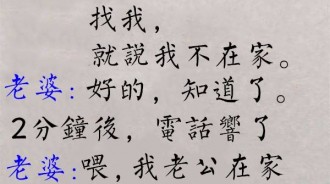 找我，
就說我不在家。
老婆：好的，知道了。
2分鐘後，電話響了
老婆：喂，我老公在家